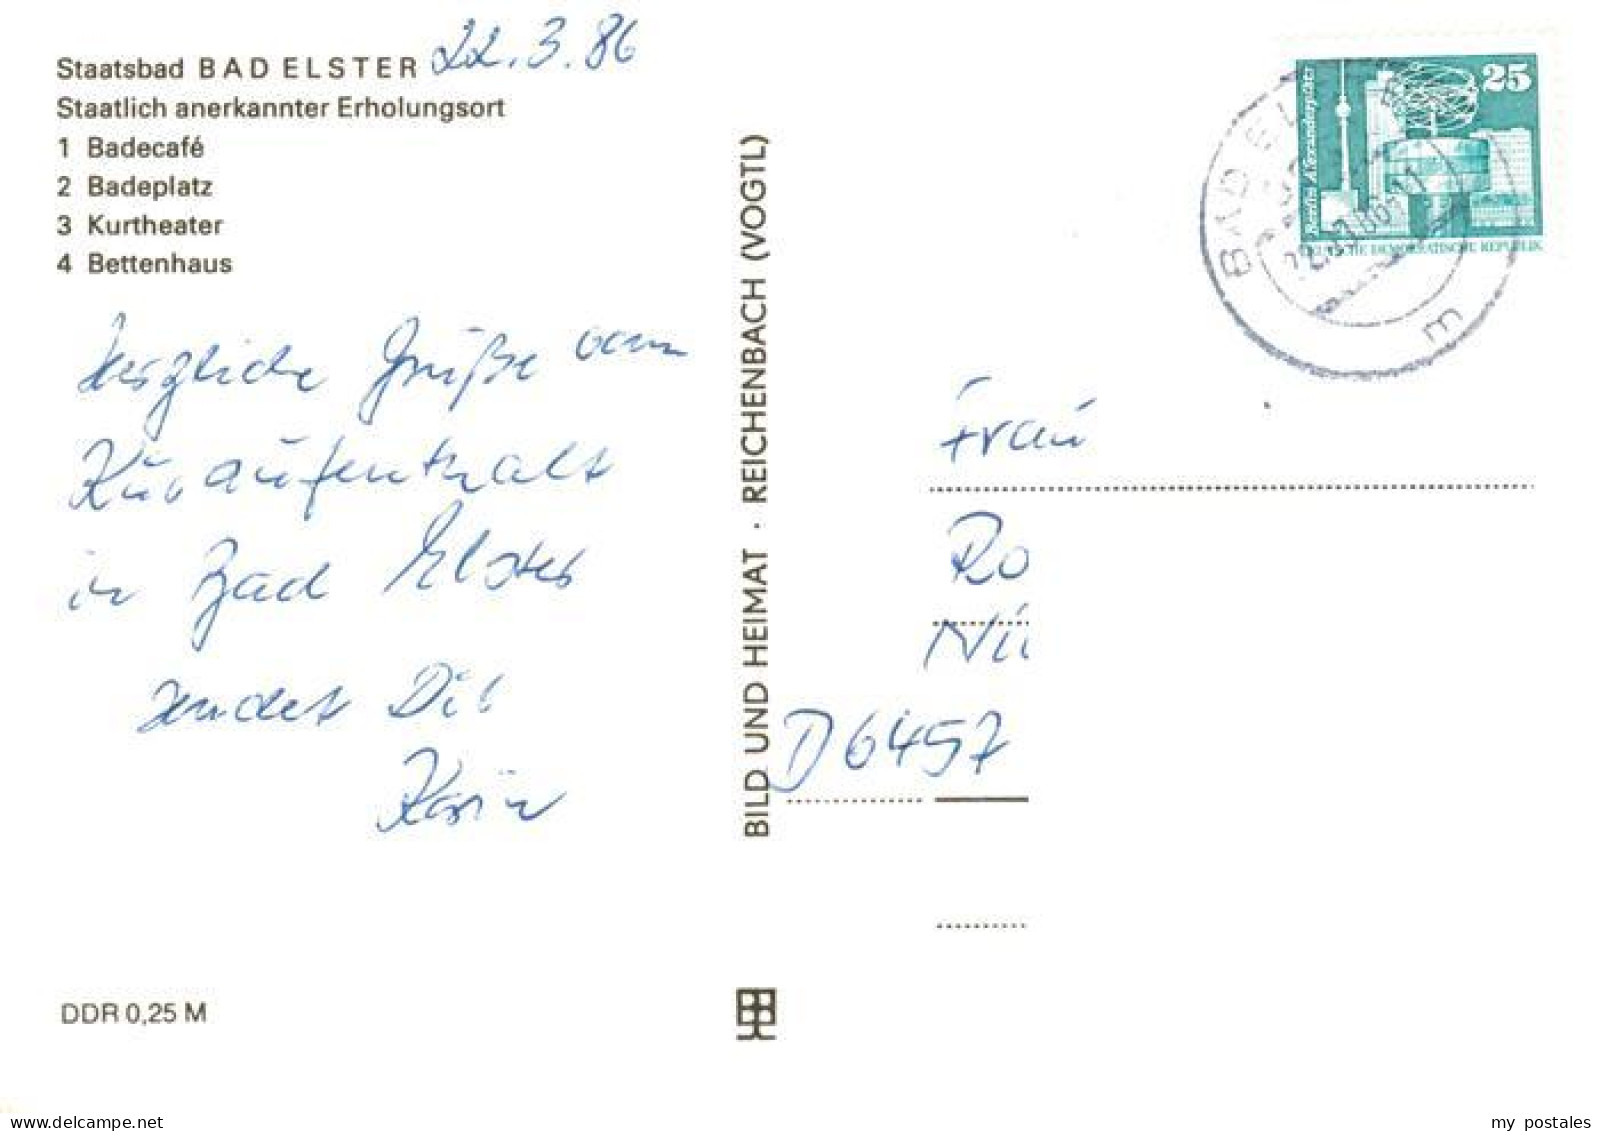 Staatsbad BAD ELSTER 22.3.86
Staatlich anerkannter Erholungsort
1 Badecafé
2 Badeplatz
3 Kurtheater
4 Bettenhaus
Herzliche Grüße vom
Kuraufenthalt
in Bad Elster
sendet Dir
Karin
DDR 0,25 M
BILD UND HEIMAT · REICHENBACH (VOGTL)
25
Berlin Alexanderplatz
DEUTSCHE DEMOKRATISCHE REPUBLIK
BAD ELSTER
m
Frau
Ro
Nü
D 6457
delcampe.net
my_postales